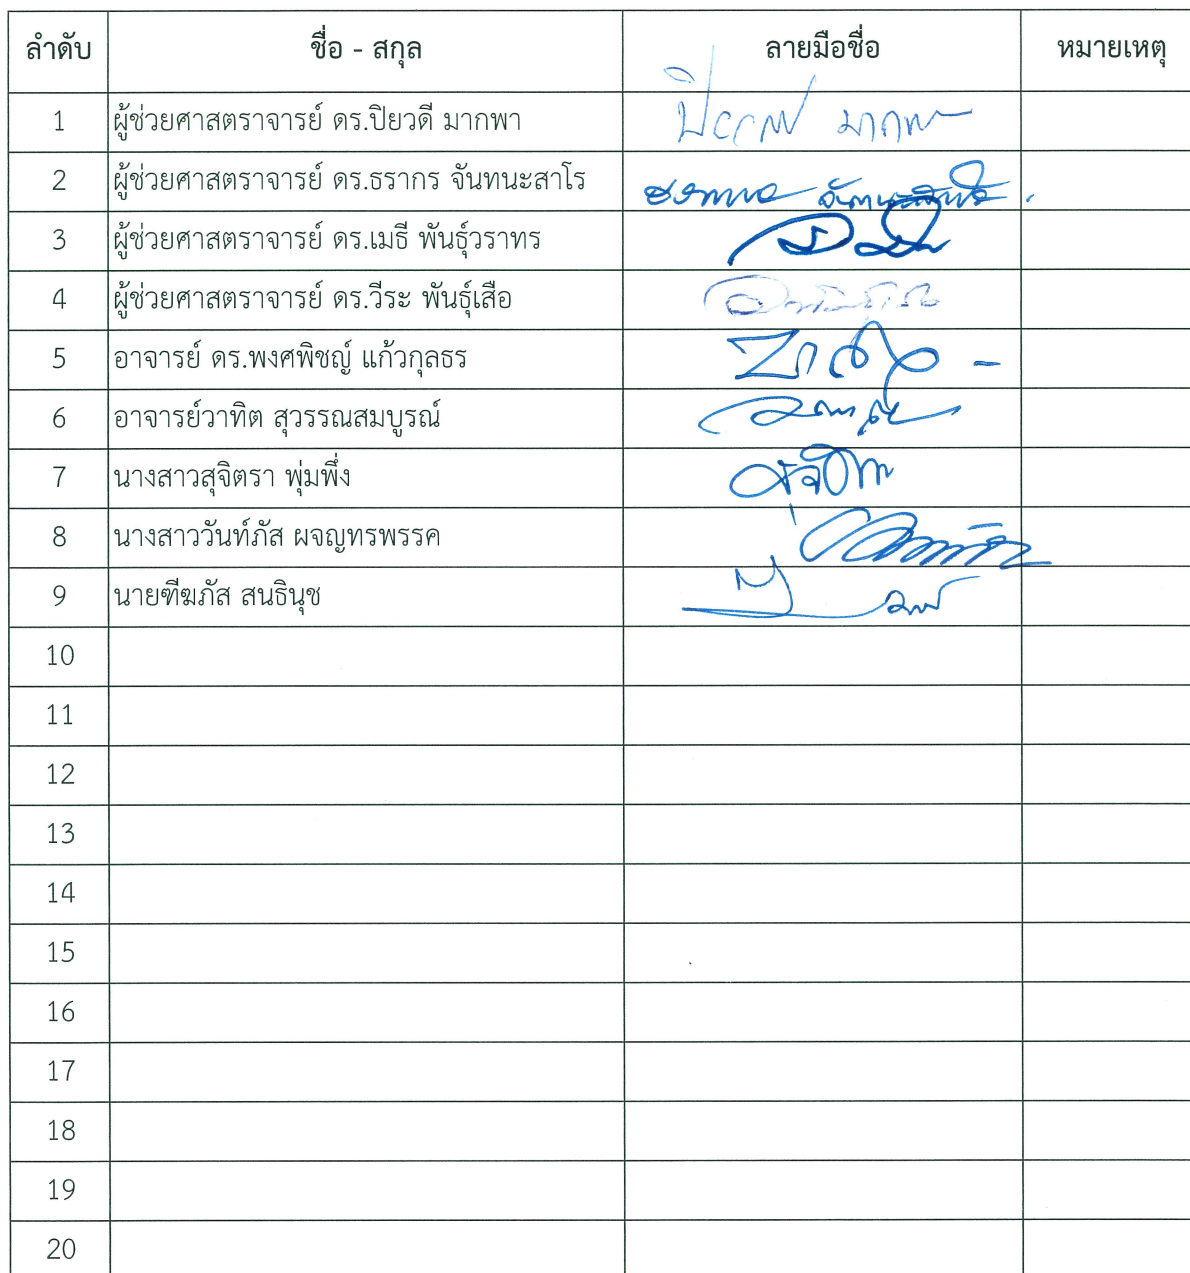 ลำดับ ชื่อ - สกุล ลายมือชื่อ หมายเหตุ
1 ผู้ช่วยศาสตราจารย์ ดร.ปิยวดี มากพา ปิยวดี มากพา
2 ผู้ช่วยศาสตราจารย์ ดร.ธรากร จันทนะสาโร
3 ผู้ช่วยศาสตราจารย์ ดร.เมธี พันธุ์วราทร
4 ผู้ช่วยศาสตราจารย์ ดร.วีระ พันธุ์เสือ
5 อาจารย์ ดร.พงศพิชญ์ แก้วกุลธร
6 อาจารย์วาทิต สุวรรณสมบูรณ์
7 นางสาวสุจิตรา พุ่มพึ่ง
8 นางสาววันท์ภัส ผจญทรพรรค
9 นายฑีฆภัส สนธินุช
10
11
12
13
14
15
16
17
18
19
20